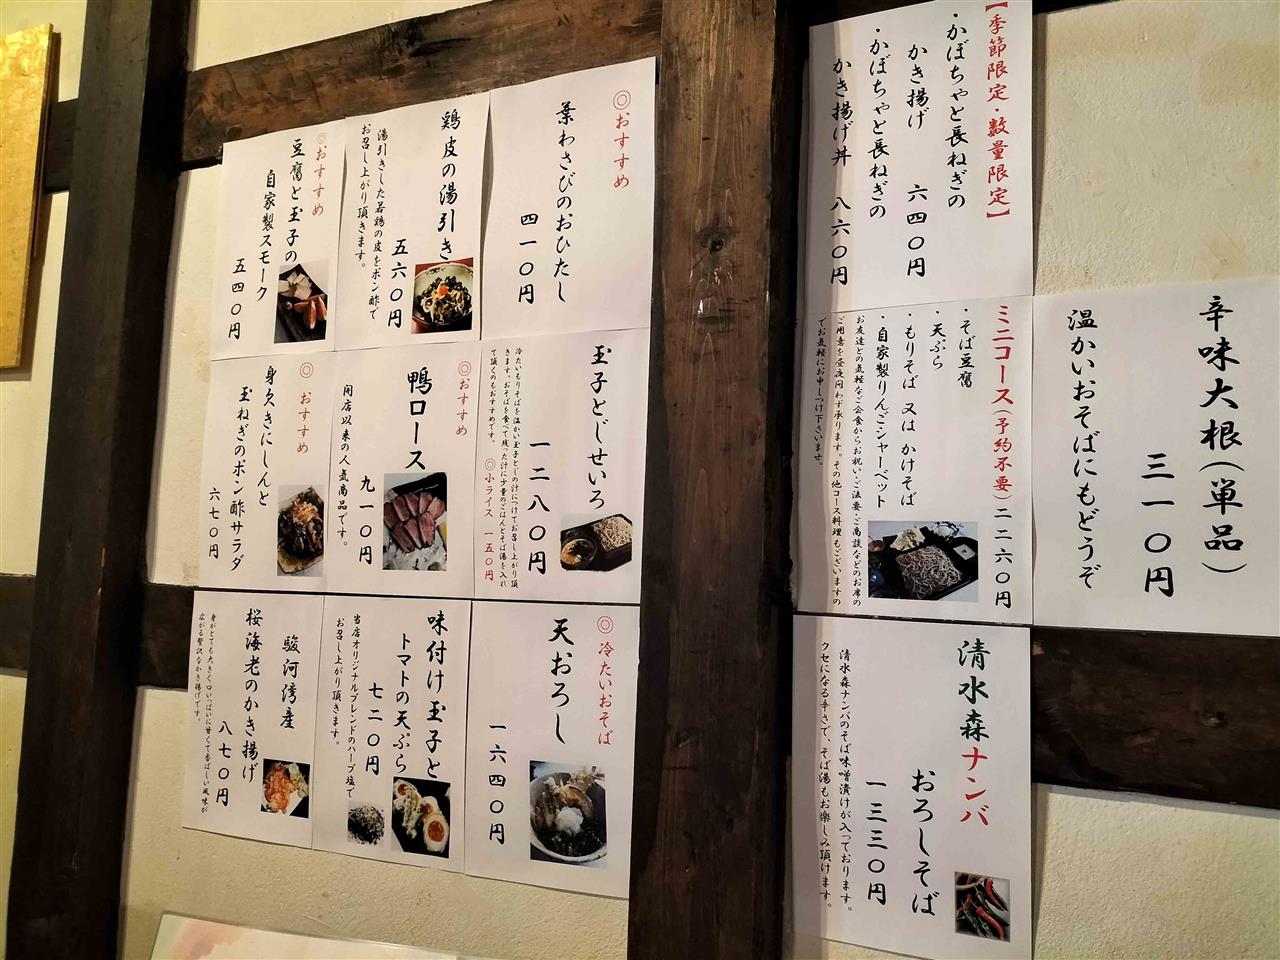 【季節限定・数量限定】
・かぼちゃと長ねぎの
かき揚げ 六四〇円
・かぼちゃと長ねぎの
かき揚げ丼 八六〇円
辛味大根(単品)
三一〇円
温かいおそばにもどうぞ
ミニコース(予約不要)二二六〇円
・そば豆腐
・天ぷら
・もりそば 又は かけそば
・自家製りんごシャーベット
お友達との気軽なご会食からお祝い・ご法要・ご商談などのお席の
ご用意を昼夜問わず承ります。その他コース料理もございますの
でお気軽にお申しつけ下さいませ。
清水森ナンバ
おろしそば
一三三〇円
清水森ナンバのそば味噌漬けが入っております。
クセになる辛さで、そば湯もお楽しみ頂けます。
◎おすすめ
葉わさびのおひたし
四一〇円
鶏皮の湯引き
五六〇円
湯引きした若鶏の皮をポン酢で
お召し上がり頂きます。
◎おすすめ
豆腐と玉子の
自家製スモーク
五四〇円
玉子とじせいろ
一二八〇円
冷たいもりそばを温かい玉子とじの汁につけてお召し上がり頂
きます。おそばを食べて残った汁に少量のごはんとそば湯を入れ
て頂くのもおすすめです。 ◎小ライス 一五〇円
◎おすすめ
鴨ロース
九一〇円
開店以来の人気商品です。
◎おすすめ
身欠きにしんと
玉ねぎのポン酢サラダ
六七〇円
◎冷たいおそば
天おろし
一六四〇円
味付け玉子と
トマトの天ぷら
七二〇円
当店オリジナルブレンドのハーブ塩で
お召し上がり頂きます。
駿河湾産
桜海老のかき揚げ
八七〇円
身がとても大きく口いっぱいに甘くて香ばしい風味が
広がる贅沢なかき揚げです。